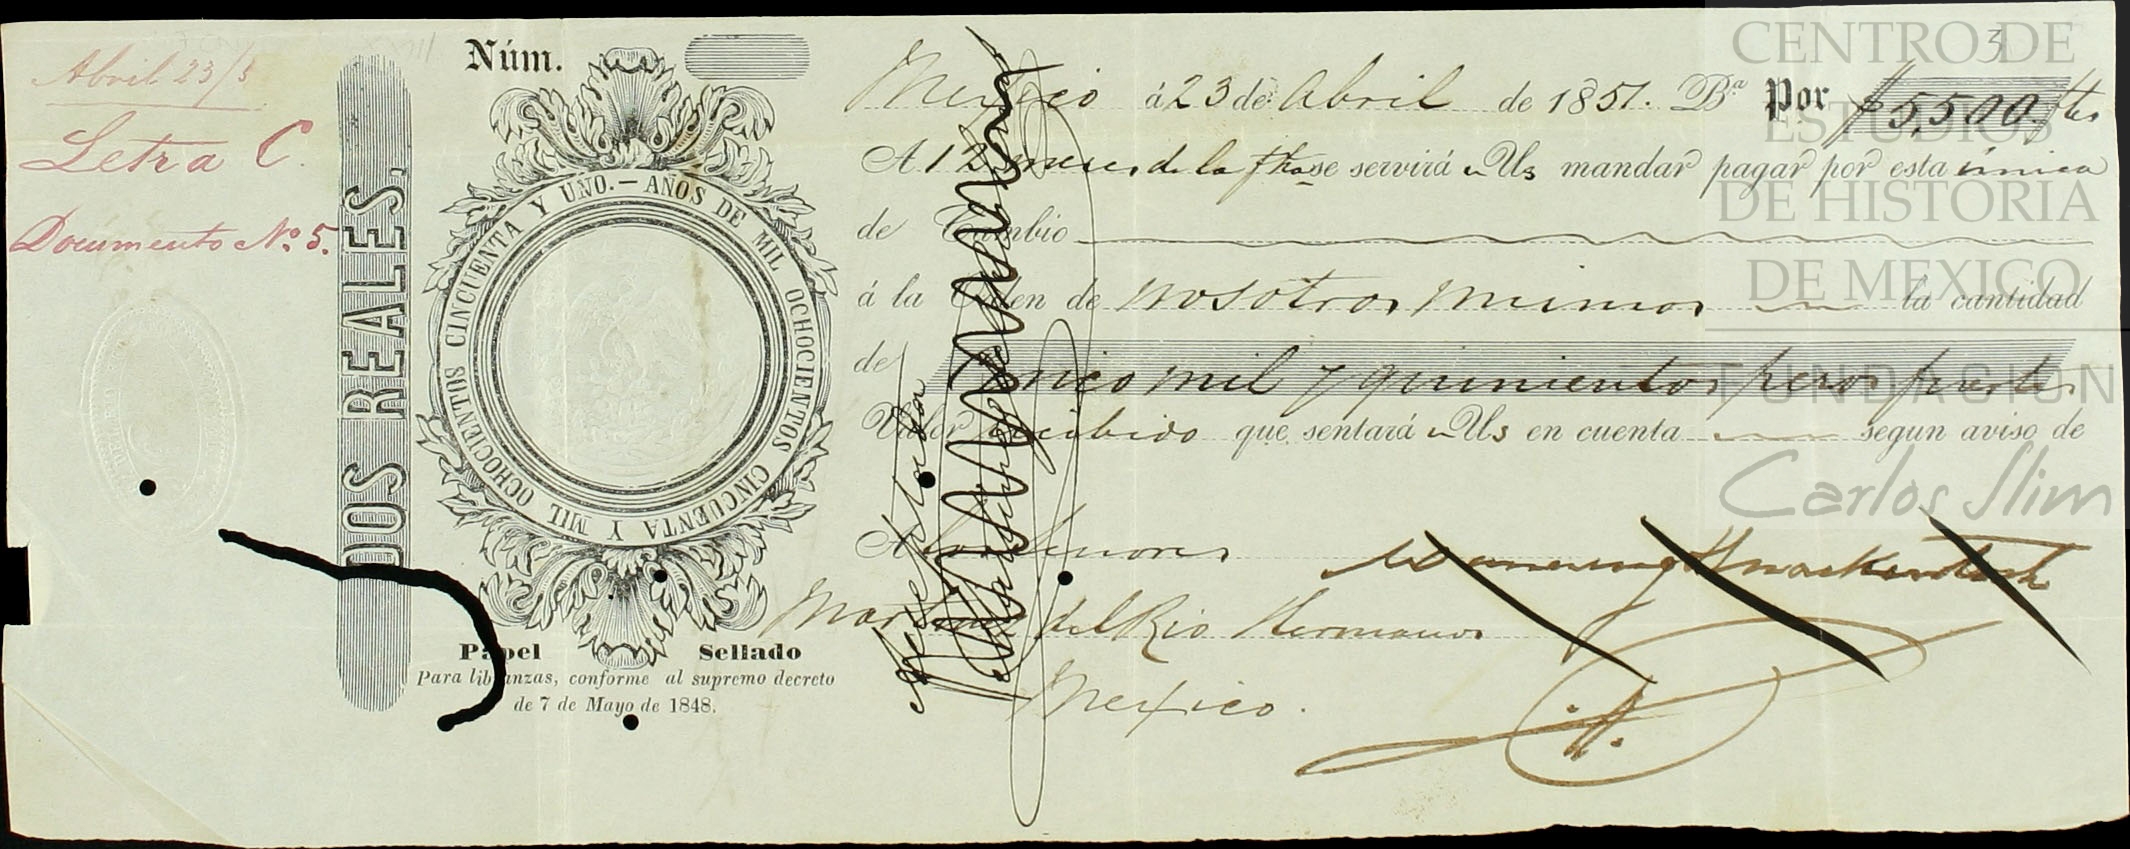 Abril 23/5
Letra C.
Documento No. 5.
DOS REALES,
Núm.
AÑOS DE MIL OCHOCIENTOS CINCUENTA Y MIL OCHOCIENTOS CINCUENTA Y UNO.—
Papel Sellado
Para libranzas, conforme al supremo decreto
de 7 de Mayo de 1848.
Mexico á 23 de Abril de 1851. Ba. Por $5,500 ftes
A 12 meses de la fha se servirá n Us mandar pagar por esta única
de Cambio
á la Orden de nosotros mismos la cantidad
de Cinco mil y quinientos pesos fuertes
Valor recibido que sentará n Us en cuenta segun aviso de
A los Señores
Martinez del Rio Hermanos
Mexico.
Manning y Mackintosh
Aceptada
3
CENTRO DE
ESTUDIOS
DE HISTORIA
DE MEXICO
FUNDACION
Carlos Slim